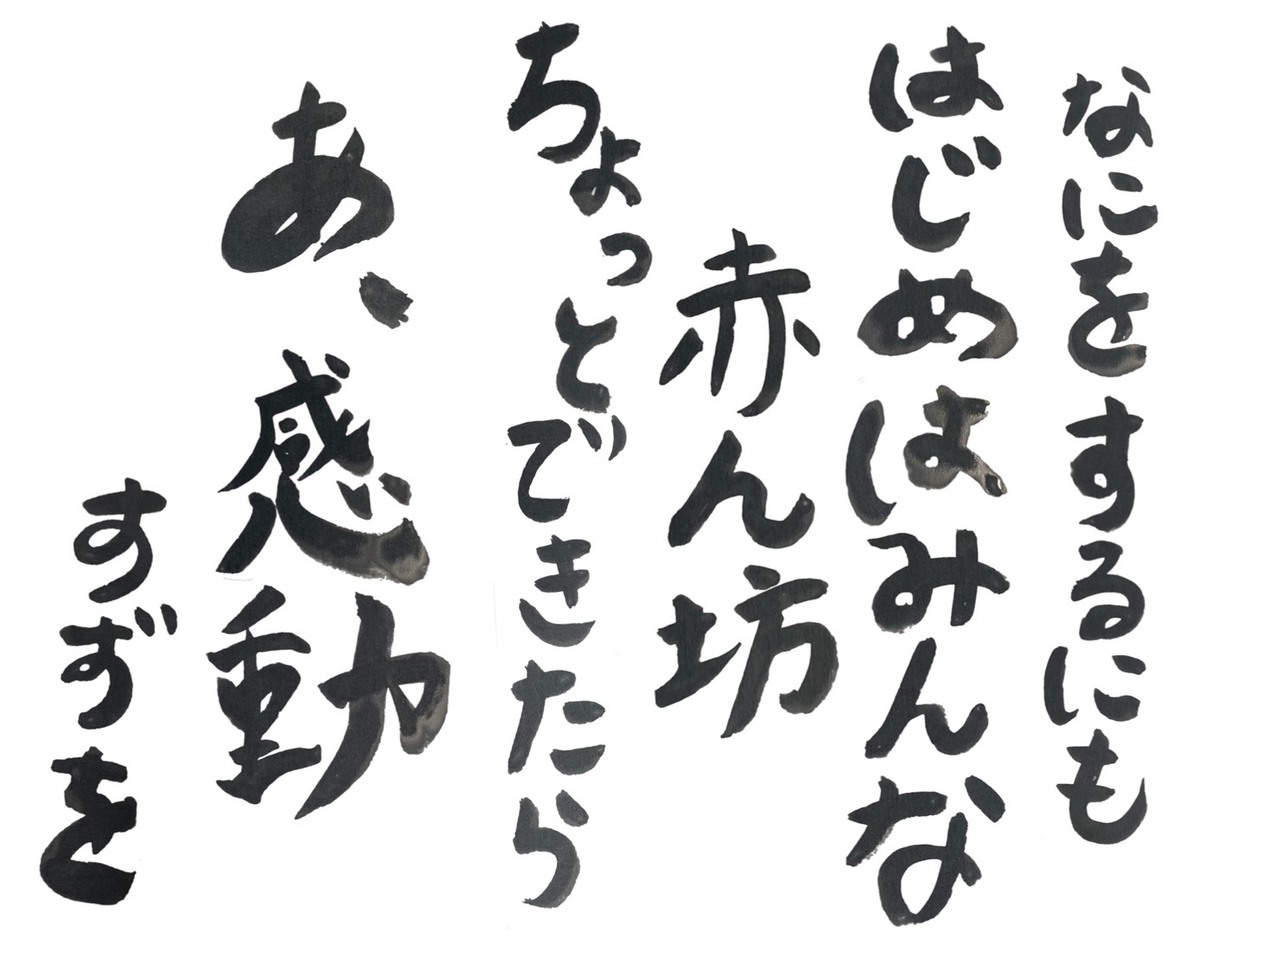 なにをするにも
はじめはみんな
赤ん坊
ちょっとできたら
あ、感動
すずを